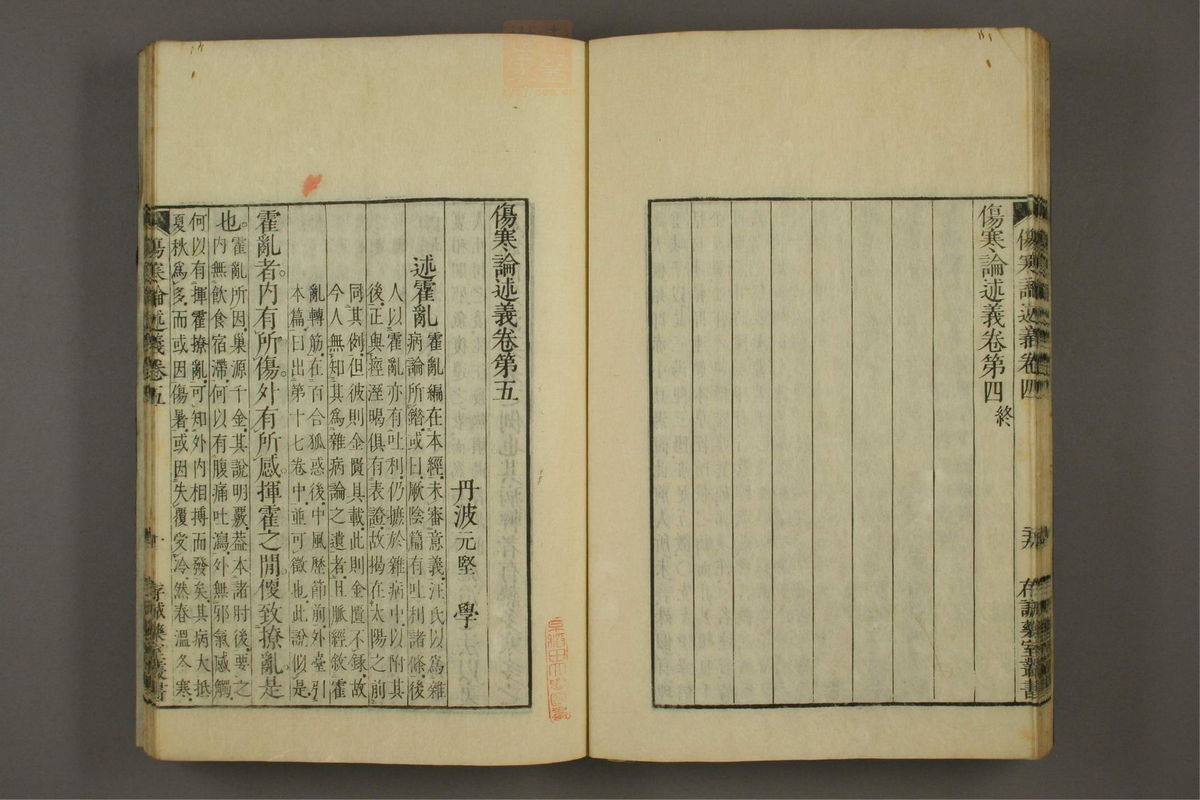 傷寒論述義卷第四終
傷寒論述義卷四
存誠藥室叢書
傷寒論述義卷第五
丹波元堅學
述霍亂
霍亂編在本經未審意義汪氏以為雜
病論所錯或曰厥陰篇有吐利諸條後
人以霍亂亦有吐利仍摭於雜病中以附其
後正與痙溼暍俱有表證故揭在太陽之前
同其例但彼則金匱具載此則金匱不錄故
今人無知其為雜病論之遺者且脈經敘霍
亂轉筋在百合狐惑後中風歷節前外臺引
本篇曰出第十七卷中並可徵也此說似是
霍亂者內有所傷外有所感揮霍之間便致撩亂是
也
霍亂所因巢源千金其說明覈蓋本諸肘後要之
內無飲食宿滯何以有腹痛吐瀉外無邪氣感觸
何以有揮霍撩亂可知外內相搏而發矣其病大抵
夏秋為多而或因傷暑或因失覆受冷然春溫冬寒
傷寒論述義卷五
一
存誠藥室叢書